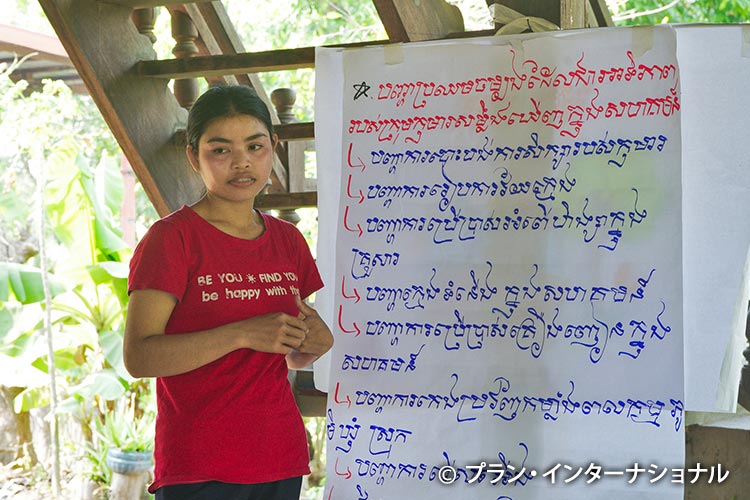 បញ្ហាប្រឈមចម្បងដែល
របស់ក្រុមកុមារសម្លឹងឃើញក្នុងសហគមន៍
បញ្ហាការបោះបង់ការសិក្សារបស់កុមារ
បញ្ហាការរៀបការវ័យក្មេង
បញ្ហាការប្រើប្រាស់អំពើហិង្សាក្នុង
គ្រួសារ
បញ្ហាក្មេងទំនើង ក្នុងសហគមន៍
បញ្ហាការប្រើប្រាស់គ្រឿងញៀនក្នុង
សហគមន៍
បញ្ហាការកេងប្រវ័ញ្ចកម្លាំងពលកម្ម
ឃុំ ស្រុក
បញ្ហាការ
BE YOU FIND YOU
be happy with
© プラン・インターナショナル